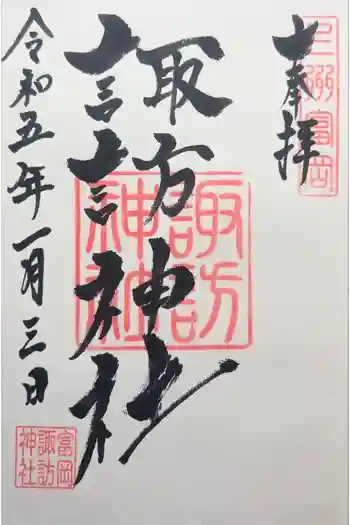 奉拝
三州富岡
諏訪神社
諏訪神社
令和五年一月三日
富岡
諏訪
神社